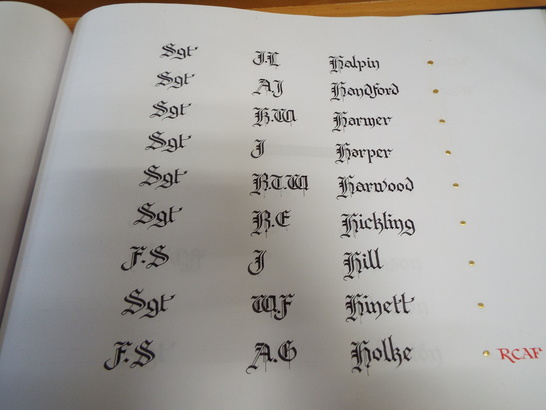 Sgt J.L Halpin
Sgt A.J Handford
Sgt H.W Harmer
Sgt J Harper
Sgt R.T.W Harwood
Sgt R.E Hickling
F.S J Hill
Sgt W.F Hinett
F.S A.G Holke RCAF